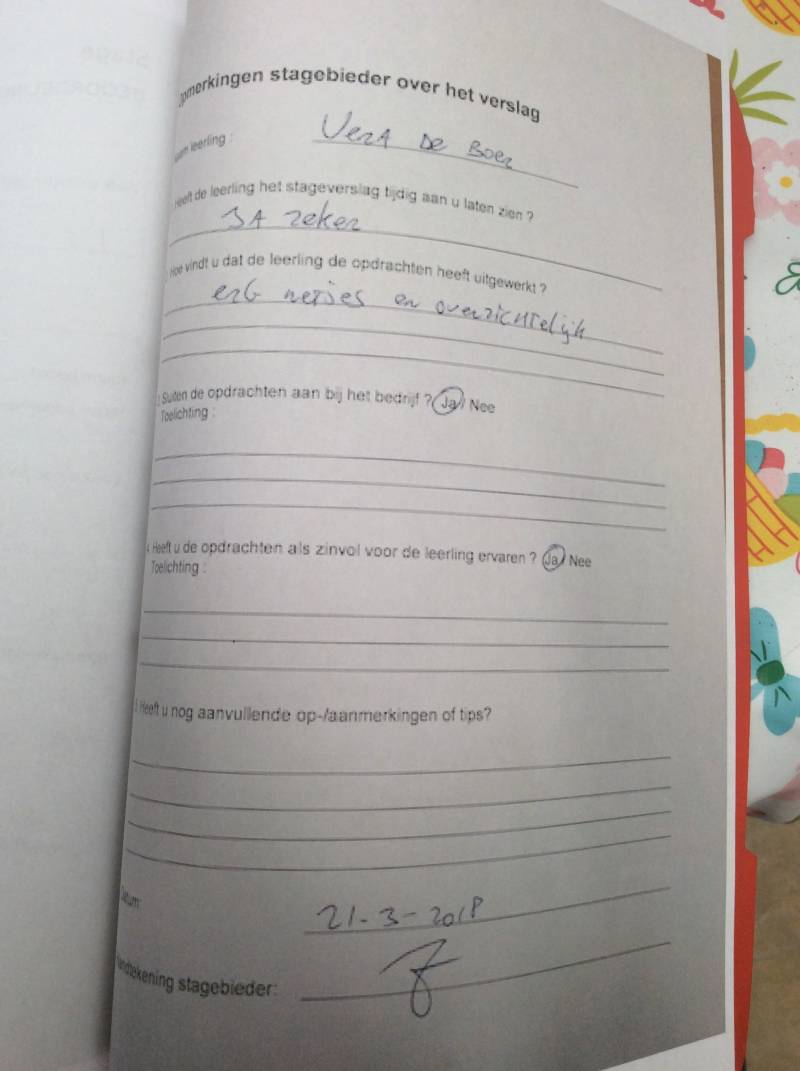 Opmerkingen stagebieder over het verslag
Naam leerling : Vera de Boer
Heeft de leerling het stageverslag tijdig aan u laten zien ?
JA zeker
Hoe vindt u dat de leerling de opdrachten heeft uitgewerkt ?
erG netjes en overzichtelijk
3 Sluiten de opdrachten aan bij het bedrijf ? Ja / Nee
Toelichting :
4 Heeft u de opdrachten als zinvol voor de leerling ervaren ? Ja / Nee
Toelichting :
5 Heeft u nog aanvullende op-/aanmerkingen of tips?
Datum: 21-3-2018
Handtekening stagebieder: